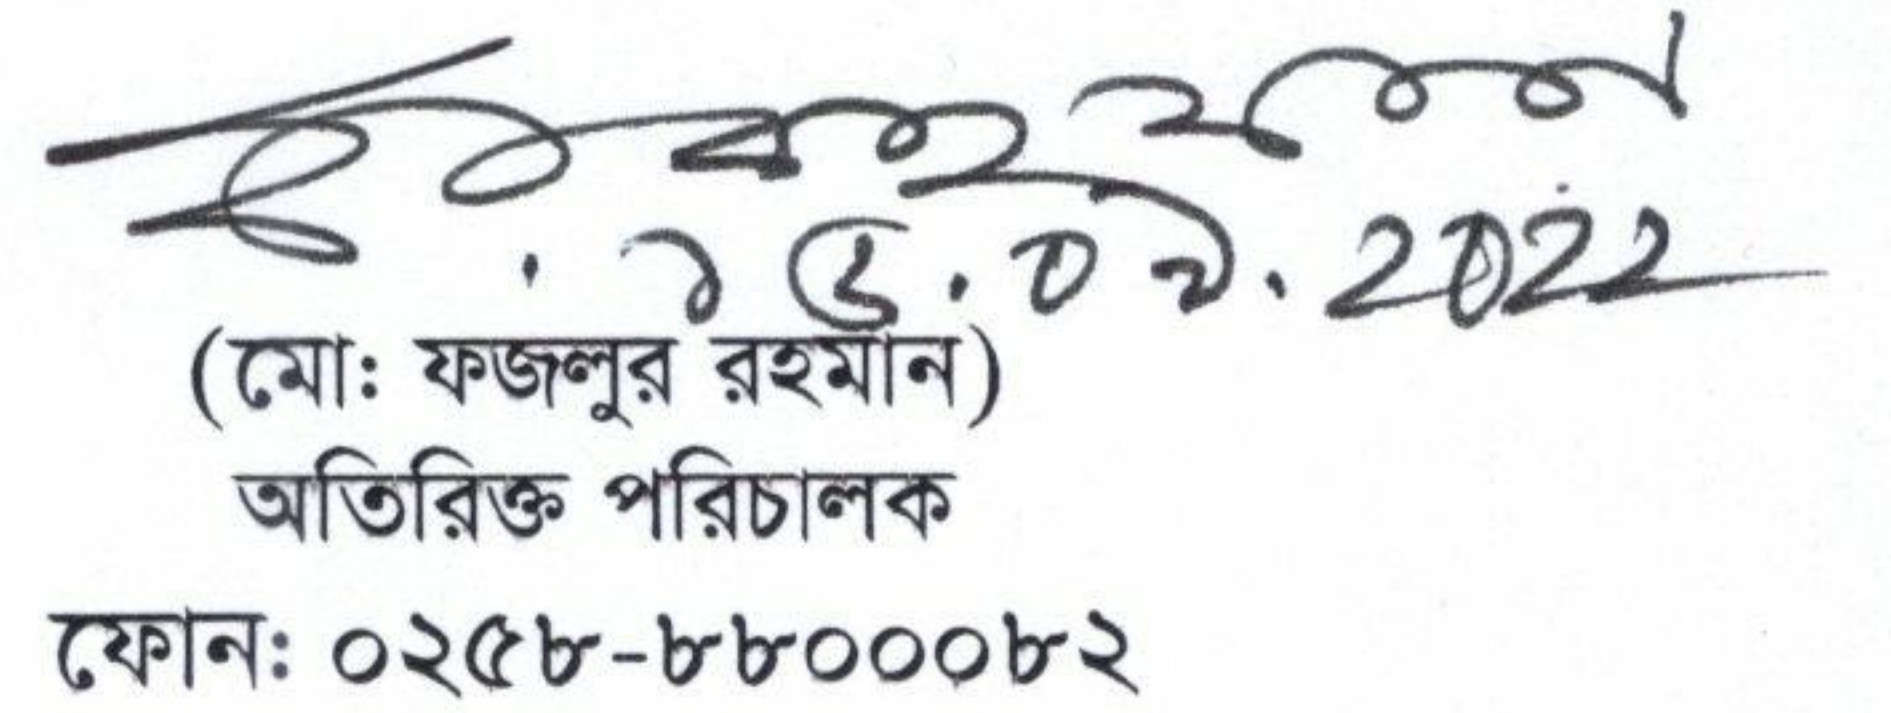 (মো: ফজলুর রহমান)
অতিরিক্ত পরিচালক
ফোন: ০২৫৮-৮৮০০০৮২